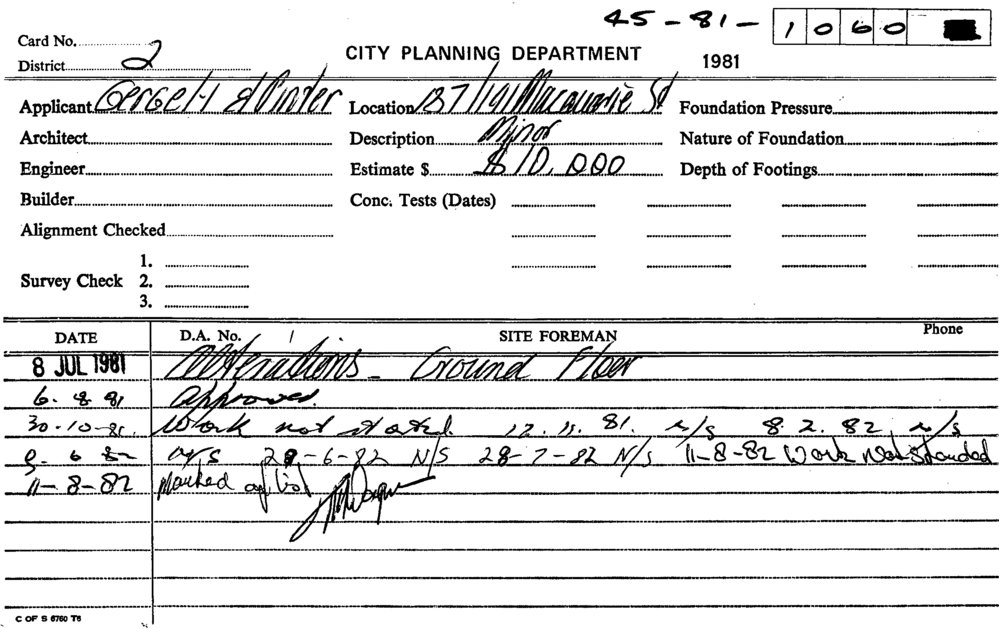 45-81- 1060
Card No.
District 2
CITY PLANNING DEPARTMENT 1981
Applicant Gergely & Pinter Location 187/191 Macquarie St Foundation Pressure
Architect Description Minor Nature of Foundation
Engineer Estimate $ $10,000 Depth of Footings
Builder Conc. Tests (Dates)
Alignment Checked
1.
Survey Check 2.
3.
DATE D.A. No. SITE FOREMAN Phone
8 JUL 1981 Alterations - Ground Floor
6. 8 81 Approved.
30-10-81. Work not started. 12.11.81. n/s 8.2.82 n/s
9. 6 82 n/s 28-6-82 N/S 28-7-82 N/S 11-8-82 Work Not Started
11-8-82 Marked off list
C OF S 6760 T6